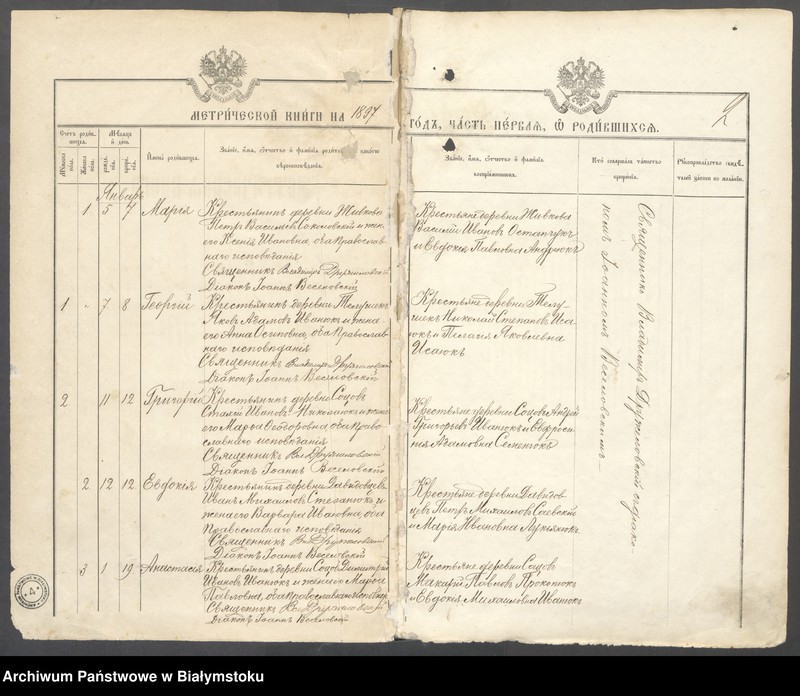 МЕТРИ́ЧЕСКОЙ КНИ́ГИ НА 1897
ГО́ДЪ, ЧА́СТЬ ПЕ́РВАЯ, Ѡ РОДИ́ВШИХСЯ.
2
Счетъ родив-
шихся.
Мѣсяцъ
и день.
Имена родившихся.
Званіе, имя, отчество и фамилія родителей и какого
вѣроисповѣданія.
Званіе, имя, отчество и фамилія
воспріемниковъ.
Кто совершалъ таинство
крещенія.
Рукоприкладство свидѣ-
телей записи по желанію.
Январь
1 5 7 Марія
Крестьянинъ деревни Живково
Петръ Васильевъ Соколовскій и жена
его Ксенія Ивановна, оба Православ-
наго исповѣданія
Священникъ Владиміръ Дружиловскій
Діаконъ Іоаннъ Веселовскій
Крестьяне деревни Живкова
Василій Ивановъ Остапчукъ
и Евдокія Павловна Андрюкъ
1 " 7 8 Георгій
Крестьянинъ деревни Телушекъ
Яковъ Адамовъ Иванюкъ и жена
его Анна Осиповна, оба Православ-
наго исповѣданія
Священникъ Владиміръ Дружиловскій
Діаконъ Іоаннъ Веселовскій
Крестьяне деревни Телу-
шекъ Николай Степановъ Иса-
юкъ и Пелагія Яковлевна
Исаюкъ
2 11 12 Григорій
Крестьянинъ деревни Соцовъ
Ивановъ Никонюкъ и жена
его Марѳа Ѳеодоровна, оба Право-
славнаго исповѣданія
Священникъ Вл. Дружиловскій
Діаконъ Іоаннъ Веселовскій
Крестьяне деревни Соцовъ Андрей
Григорьевъ Иванюкъ и Евфроси-
нія Адамовна Семенюкъ
2 12 12 Евдокія
Крестьянинъ деревни Давидовцевъ
Иванъ Михаиловъ Степанюкъ и
жена его Варвара Ивановна, оба
Православнаго исповѣданія
Священникъ Вл. Дружиловскій
Діаконъ Іоаннъ Веселовскій
Крестьяне деревни Давидов-
цевъ Петръ Михаиловъ Саевскій
и Марія Ивановна Лукьянюкъ
3 1 19 Анастасія
Крестьянинъ деревни Соцовъ Димитрій
Ивановъ Иванюкъ и жена его Марѳа
Павловна, оба православнаго исповѣд.
Священникъ Вл. Дружиловскій
Діаконъ Іоаннъ Веселовскій
Крестьяне деревни Соцовъ
Макарій Павловъ Прокопюкъ
и Евдокія Михаиловна Иванюкъ
Священникъ Владиміръ Дружиловскій съ діако-
номъ Іоанномъ Веселовскимъ
4
Archiwum Państwowe w Białymstoku